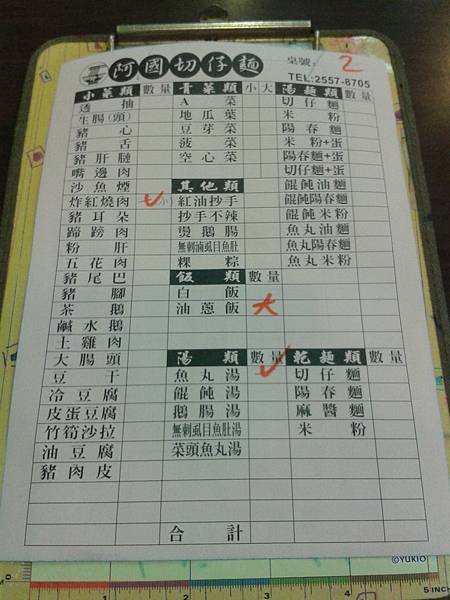 阿國切仔麵
桌號: 2
TEL:2557-8705
小菜類 數量
透抽
生腸(頭)
豬心
豬舌
豬肝腱
嘴邊肉
沙魚煙
炸紅燒肉 ✓
豬耳朵
蹄蹄肉
粉肝
五花肉
豬尾巴
豬腳
茶鵝
鹹水鵝
土雞肉
大腸頭
豆干
冷豆腐
皮蛋豆腐
竹筍沙拉
油豆腐
豬肉皮
青菜類 小 大
A菜
地瓜葉
豆芽菜
菠菜
空心菜
其他類
紅油抄手
抄手不辣
燙鵝腸
無刺滷虱目魚肚
粿粽
飯類 數量
白飯
油蔥飯 大
湯類 數量
魚丸湯 ✓
餛飩湯
鵝腸湯
無刺虱目魚肚湯
菜頭魚丸湯
合計
湯麵類 數量
切仔麵
米粉
陽春麵
米粉+蛋
陽春麵+蛋
切仔麵+蛋
餛飩油麵
餛飩陽春麵
餛飩米粉
魚丸油麵
魚丸陽春麵
魚丸米粉
乾麵類 數量
切仔麵
陽春麵
麻醬麵
米粉
©YUKIO
5 INCH